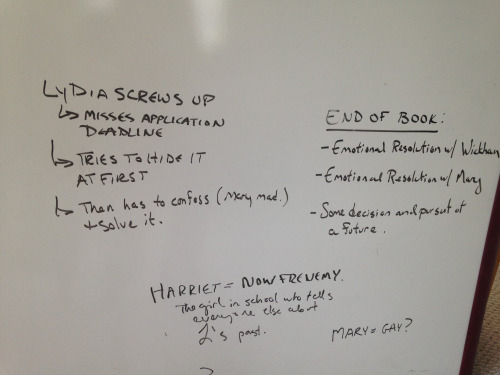 LYDIA SCREWS UP
↳ MISSES APPLICATION
DEADLINE
↳ TRIES TO HIDE IT
AT FIRST
↳ Then has to confess (Mary mad.)
+ solve it.
END OF BOOK:
- Emotional Resolution w/ Wickham
- Emotional Resolution w/ Mary
- Some decision and pursuit of
a future.
HARRIET = NOW FRENEMY.
The girl in school who tells
everyone else about
L's past.
MARY = GAY?
?